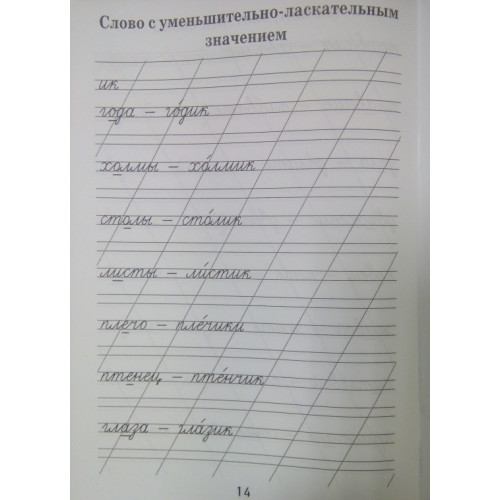 Слово с уменьшительно-ласкательным
значением
ик
года – го́дик
холмы – хо́лмик
столы – сто́лик
листы – ли́стик
плечо – пле́чики
птенец – пте́нчик
глаза – гла́зик
14